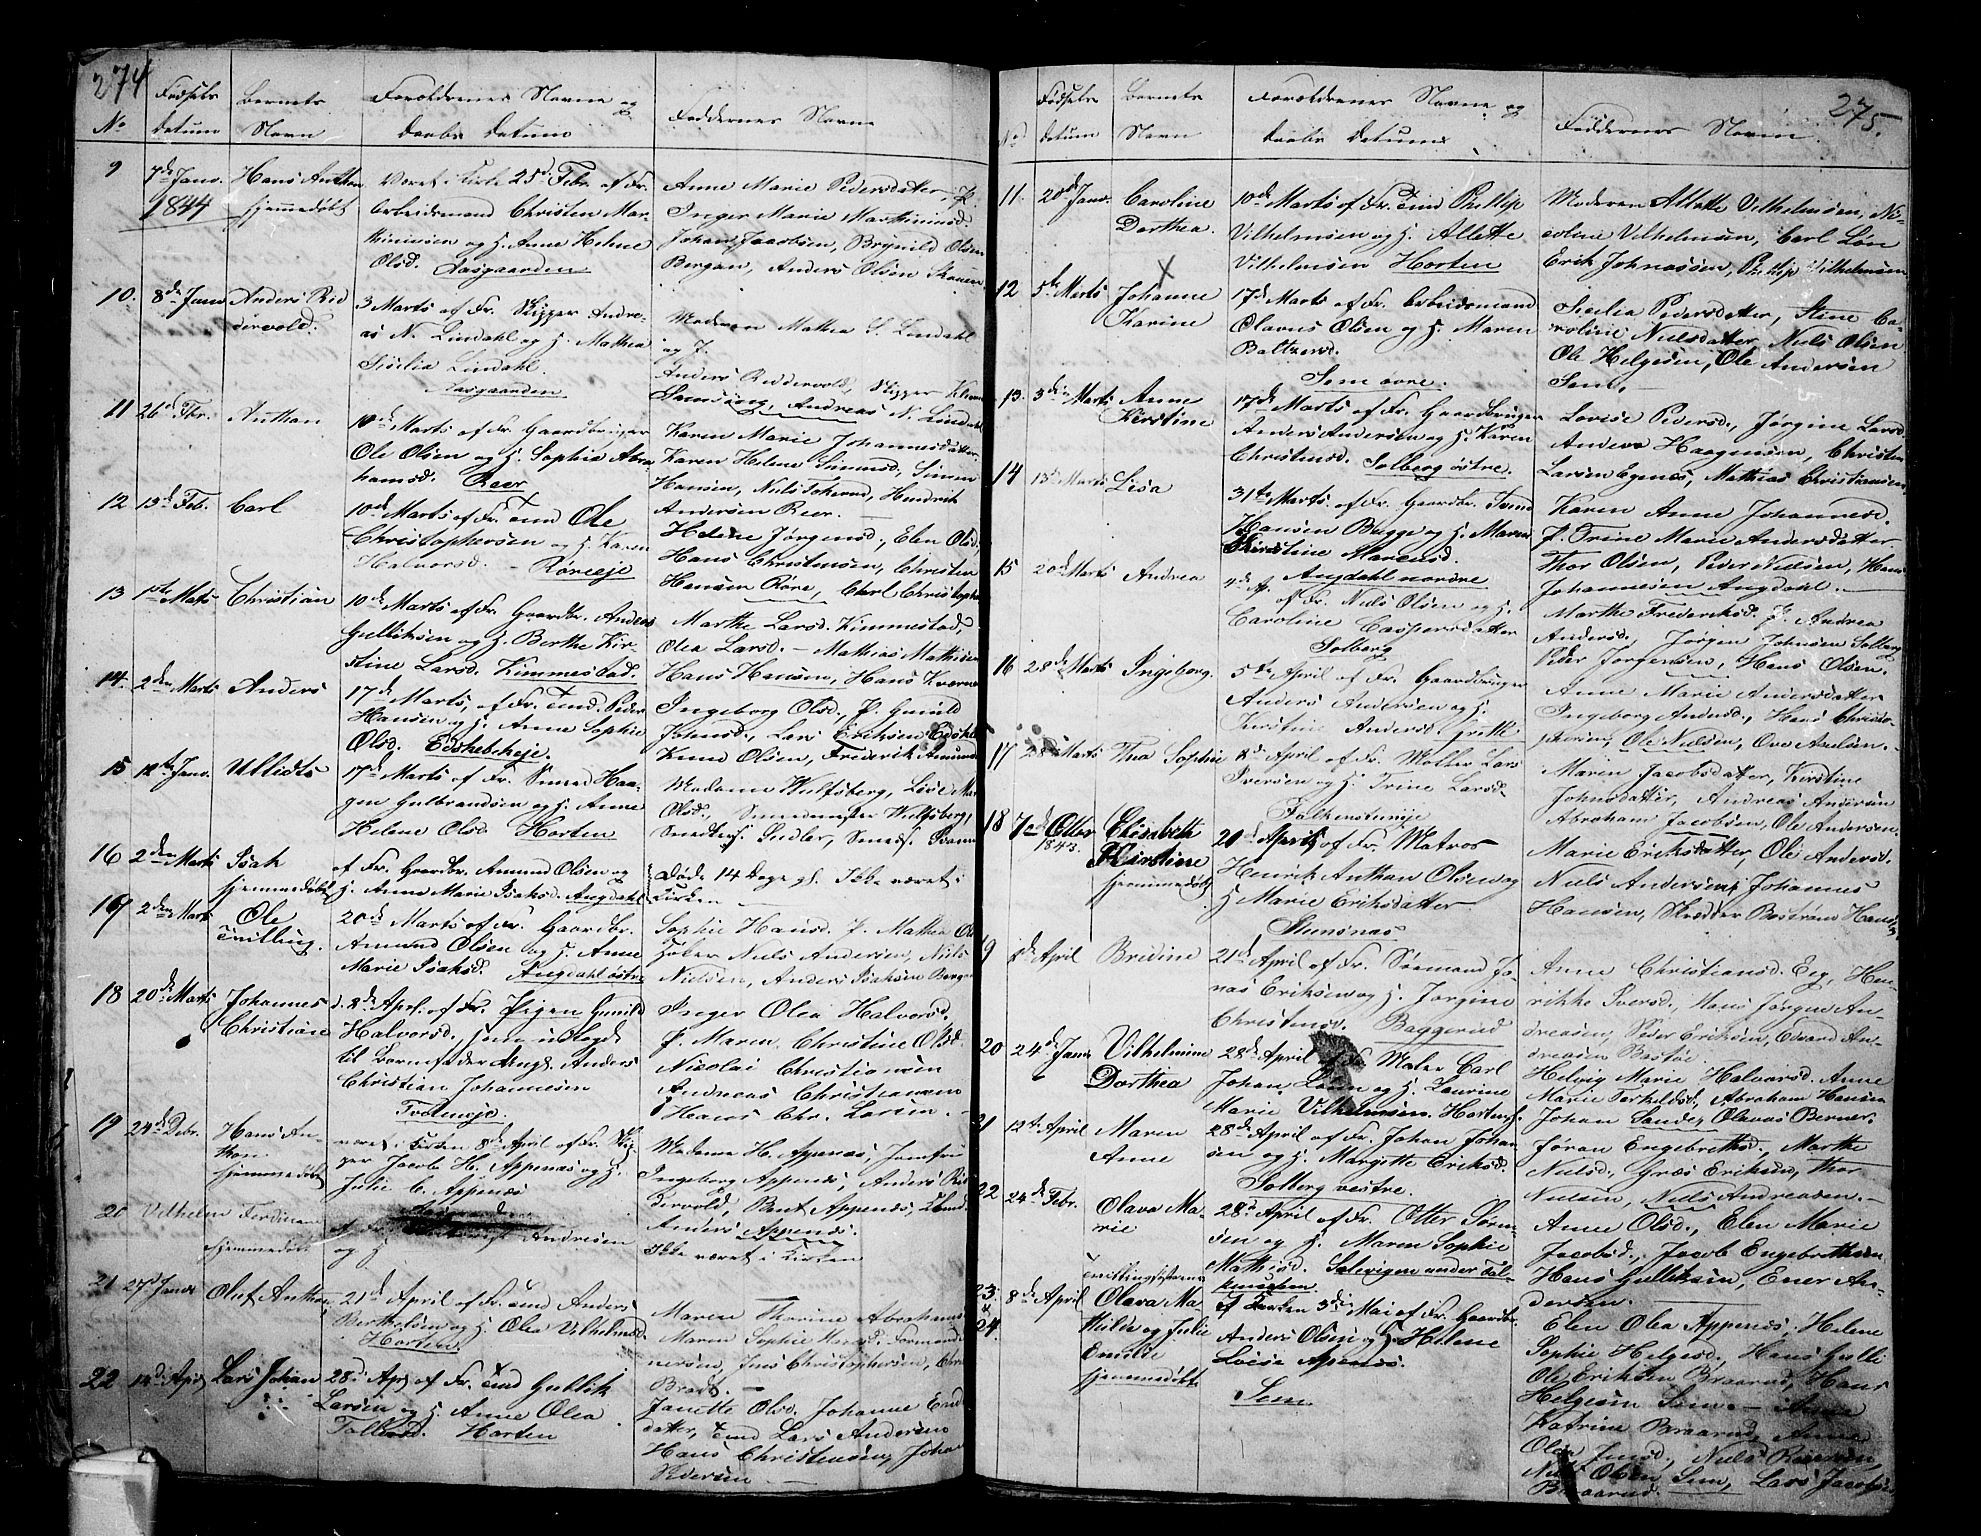 274
No
Fødsels
datum
Barnets
Navn
Forældrenes Navne og
Daabs Datum
Faddernes Navne
9
7de Janv.
1844
Hans Anthon
hjemmedøbt
Været i Kirke 25de Febr. af Fr.
Arbeidsmand Christen Mar-
thinusen og H. Anne Helene
Olsd. Aasgaarden
Anne Marie Pedersdatter, P.
Inger Marie Marthinusd.
Johan Jacobsen, Brynild Olsen
Bergan, Anders Olsen Skauen
10.
8de Janv
Anders Rid
dervold.
3 Marts af Fr. Skipper Andre-
as N. Lindahl og H. Mathea
Sicilia Lindahl.
Aasgaarden
Moderen Mathea S. Lindahl
og J.
Anders Riddervold, Skipper
Samsing, Andreas N. Lindahl
11
26de Fbr.
Anthon
10de Marts af Fr. Gaardbruger
Ole Olsen og H. Sophie Abra
hamsd. Reer
Karen Marie Johannesdatter
Karen Helene Simensd., Simen
Hansen, Niels Johnsen, Hendrik
Andersen Reer.
12
13de Feb.
Carl
10de Marts af Fr. Tmd Ole
Christophersen og H. Karen
Halvorsd. Røreeje
Helene Jørgensd., Elen Olsd.
Hans Christensen, Christen
Hansen Røre, Carl Christophe
13
1ste Mats
Christian
10de Marts af Fr. Gaardbr. Anders
Gulliksen og H. Berthe Kir-
stine Larsd. Kimmestad.
Marthe Larsd. Kimmestad,
Olea Larsd. - Mathias Mathisen
Hans Hansen, Hans
14.
2den Marts
Anders
17de Marts, af Fr. Tmd. Peder
Hansen og H. Anne Sophie
Olsd.
Ingeborg Olsd. P. Gunild
Johnsd., Lars Eriksen
Knud Olsen, Frederik Amund
15
12te Janv.
17de Marts af Fr. Smed Haa-
gen Gulbrandsen og H. Anne
Helene Olsd. Horten
Madame Wulfsberg, Lovise
Olsd., Smedmester Wulfsberg,
16
2den Marts
Isak
hjemmedøbt
af Fr. Gaardbr. Amund Olsen og
H. Anne Marie Isaksd. Augdahl
Døde 14 Dage gl. Ikke været i
Kirken
17
2den Marts
Ole
Tvilling.
20de Marts af Fr. Gaardbr.
Amund Olsen og H. Anne
Marie Isaksd. Augdahl østre
Sophie Hansd. P. Mathea
Niels Andersen, Niels
Nielsen, Anders Isaksen Berg
18
20de Marts
Johannes
Christian
d. 8de Apr. af Fr. Pigen Gunild
Halvorsd. som udlagde
til Barnefader Ungk. Anders
Christian Johannesen
Inger Olea Halvorsd.
P. Maren Christine Olsd.
Nicolai Christiansen
Andreas Christiansen
Hans Chr. Larsen. -
19
24de Debr.
Hans An-
thon
hjemmedøbt
været i Kirken 8de April af Fr. Skip-
per Jacob H. Appenæs og H.
Julie C. Appenæs
Madame H. Appenæs, Jomfru
Ingeborg Appenæs, Anders Rid
dervold, Bent Appenæs,
Anders Appenæs.
20
Vilhelm Ferdinan
hjemmedøbt
af Fr. Andresen
og H
Ikke været i Kirken
21
27de Janv
Oluf Anthon
21de April af Fr. Tmd Anders
Berthelsen og H. Olea Vilhelmsd.
Horten
Maren Thorine Abrahamsd
Maren Sophie
nersen, Jens Christophersen,
Bradt. -
22
14de April
Lars Johan
28de Apr af Fr. Tmd Gullik
Larsen og H. Anne Olea
Horten
Janette Olsd. Johanne
datter, Tmd Lars Andersen
Hans Christensen, Johan
Pedersen
275.
No
Fødsels
datum
Barnets
Navn
Forældrenes Navne og
Daabs Datum
Faddernes Navne.
11.
20de Janv.
Caroline
Dorthea.
10de Marts af Fr. Tmd Phillip
Vilhelmsen og H. Allette
Vilhelmsen Horten
Moderen Allette Vilhelmsen, Ni-
coline Vilhelmsen, Carl Løvn
Erik Johnassen, Phillip Vilhelmsen
12
5te Marts
Johanne
Karine
17de Marts af Fr. Arbeidsmand
Olavus Olsen og H. Maren
Baltzersd.
Sem øvre.
Sicilia Pedersdatter, Stine Ca-
roline Nielsdatter, Niels Olsen
Ole Helgesen, Ole Andersen
Sem.
13.
3die Marts
Anne
Kirstine
17de Marts af Fr. Gaardbruger
Anders Andersen og H. Karen
Christensd. Solberg østre.
Lovise Pedersd., Jørgine Larsd
Anders Haagensen, Christen
Larsen Egenes, Mathias Christiansen
14
13de Marts
Lisa
31te Marts af Fr. Gaardbr. Svend
Hansen Bugge og H. Maren
Kirstine Marensd.
Augdahl nordre
Karen Anne Johannesd.
P. Trine Marie Andersdatter
Thor Olsen, Peder Nielsen, Hans
Johannesen Augdahl.
15
20de Marts
Andrea
4de Ap.
af Fr. Niels Olsen og H.
Caroline Caspersdatter
Solberg
Marthe Frederiksd. P. Andrea
Andersd., Jørgen Johnsen Solberg
Peder Jørgensen, Hans Olsen.
16
28de Marts
Ingeborg.
5te April af Fr. Gaardbruger
Anders Andersen og H.
Kirstine Andersd.
Anne Marie Andersdatter
Ingeborg Andersd., Hans Christo-
phersen, Ole Nielsen, Ove Axelsen.
17
28de Marts
Thea Sophie
8de April af Fr. Møller Lars
Iversen og H. Trine Larsd.
Falkenstenseje
Maren Jacobsdatter, Kirstine
Johnsdatter, Andreas Andersen
Abraham Jacobsen, Ole Andersen.
18
7de Octbr
1843.
Elisabeth
Kirstine
hjemmedøbt
20de April af Fr. Matros
Henrik Anthon Olsen og
H Marie Eriksdatter.
Marie Eriksdatter, Ole Andersd.
Niels Andersen, Johannes
Hansen, Skrædder Boström Hansen
19
1de April
Bredine
21de April af Fr. Sømand Jo-
nas Eriksen og H. Jørgine
Christensd. Baggerud
Anne Christiansd. Eeg, Hen-
rikke Iversd., Hans Jørgen An-
dreasen, Peder Eriksen, Edvard An-
dreasen Bastøe.
20
24de Janv
Vilhelmine
Dorthea
28de April af Fr. Maler Carl
Johan Løvn og H. Laurine
Marie Vilhelmsen. Horten.
Helvig Marie Halvorsd. Anne
Marie Terkelsd., Abraham Hansen
Johan Sande, Olavus Berner.
21
12te April
Maren
Anne
28de April af Fr. Johan Johan
sen og H. Margitte Eriksd.
Solberg vestre.
Jøran Engebrethsd., Marthe
Nielsd., Græs Eriksen, Thor
Nielsen, Niels Andreasen. -
22
24de Febr.
Olava Ma-
rie
28de April af Fr. Otter Søren-
sen og H. Maren Sophie
Mathisd. Solevigen under Fal-
kensteen
Anne Olsd., Elen Marie
Jacobsd., Jacob Engebrethsen
Hans Gulliksen, Ener An-
dersen.
23.
&
24.
8de April
Tvillingsøstrene
Olava Ma-
thilde og Julie
Emilie
hjemmedøbt
I Kirken 3die Mai af Fr. Gaardbr.
Anders Olsen og H. Helene
Lovise Apenæs.
Sem
Elen Olea Appenæs, Helene
Sophie Helgesd., Hans Gulli
Ole Eriksen Braarud, Hans
Helgesen Sem. - Anne
Katrine Braarud, Anne
Olea Jensd., Niels Reiersen,
Niels Olsen Sem, Lars Jacobsen
Braarud.